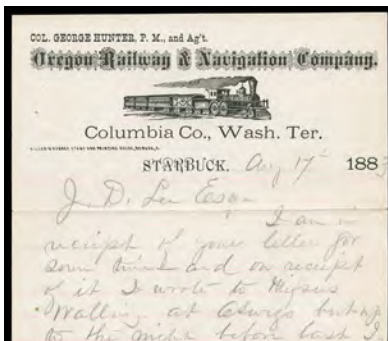 COL. GEORGE HUNTER, P. M., and Ag't.
Oregon Railway & Navigation Company.
Columbia Co., Wash. Ter.
STARBUCK, Aug 17th 1883
J. D. Lee Esqr
I am in
receipt of your letter for
some time and on receipt
of it I wrote to
Walling at
to the night before last I